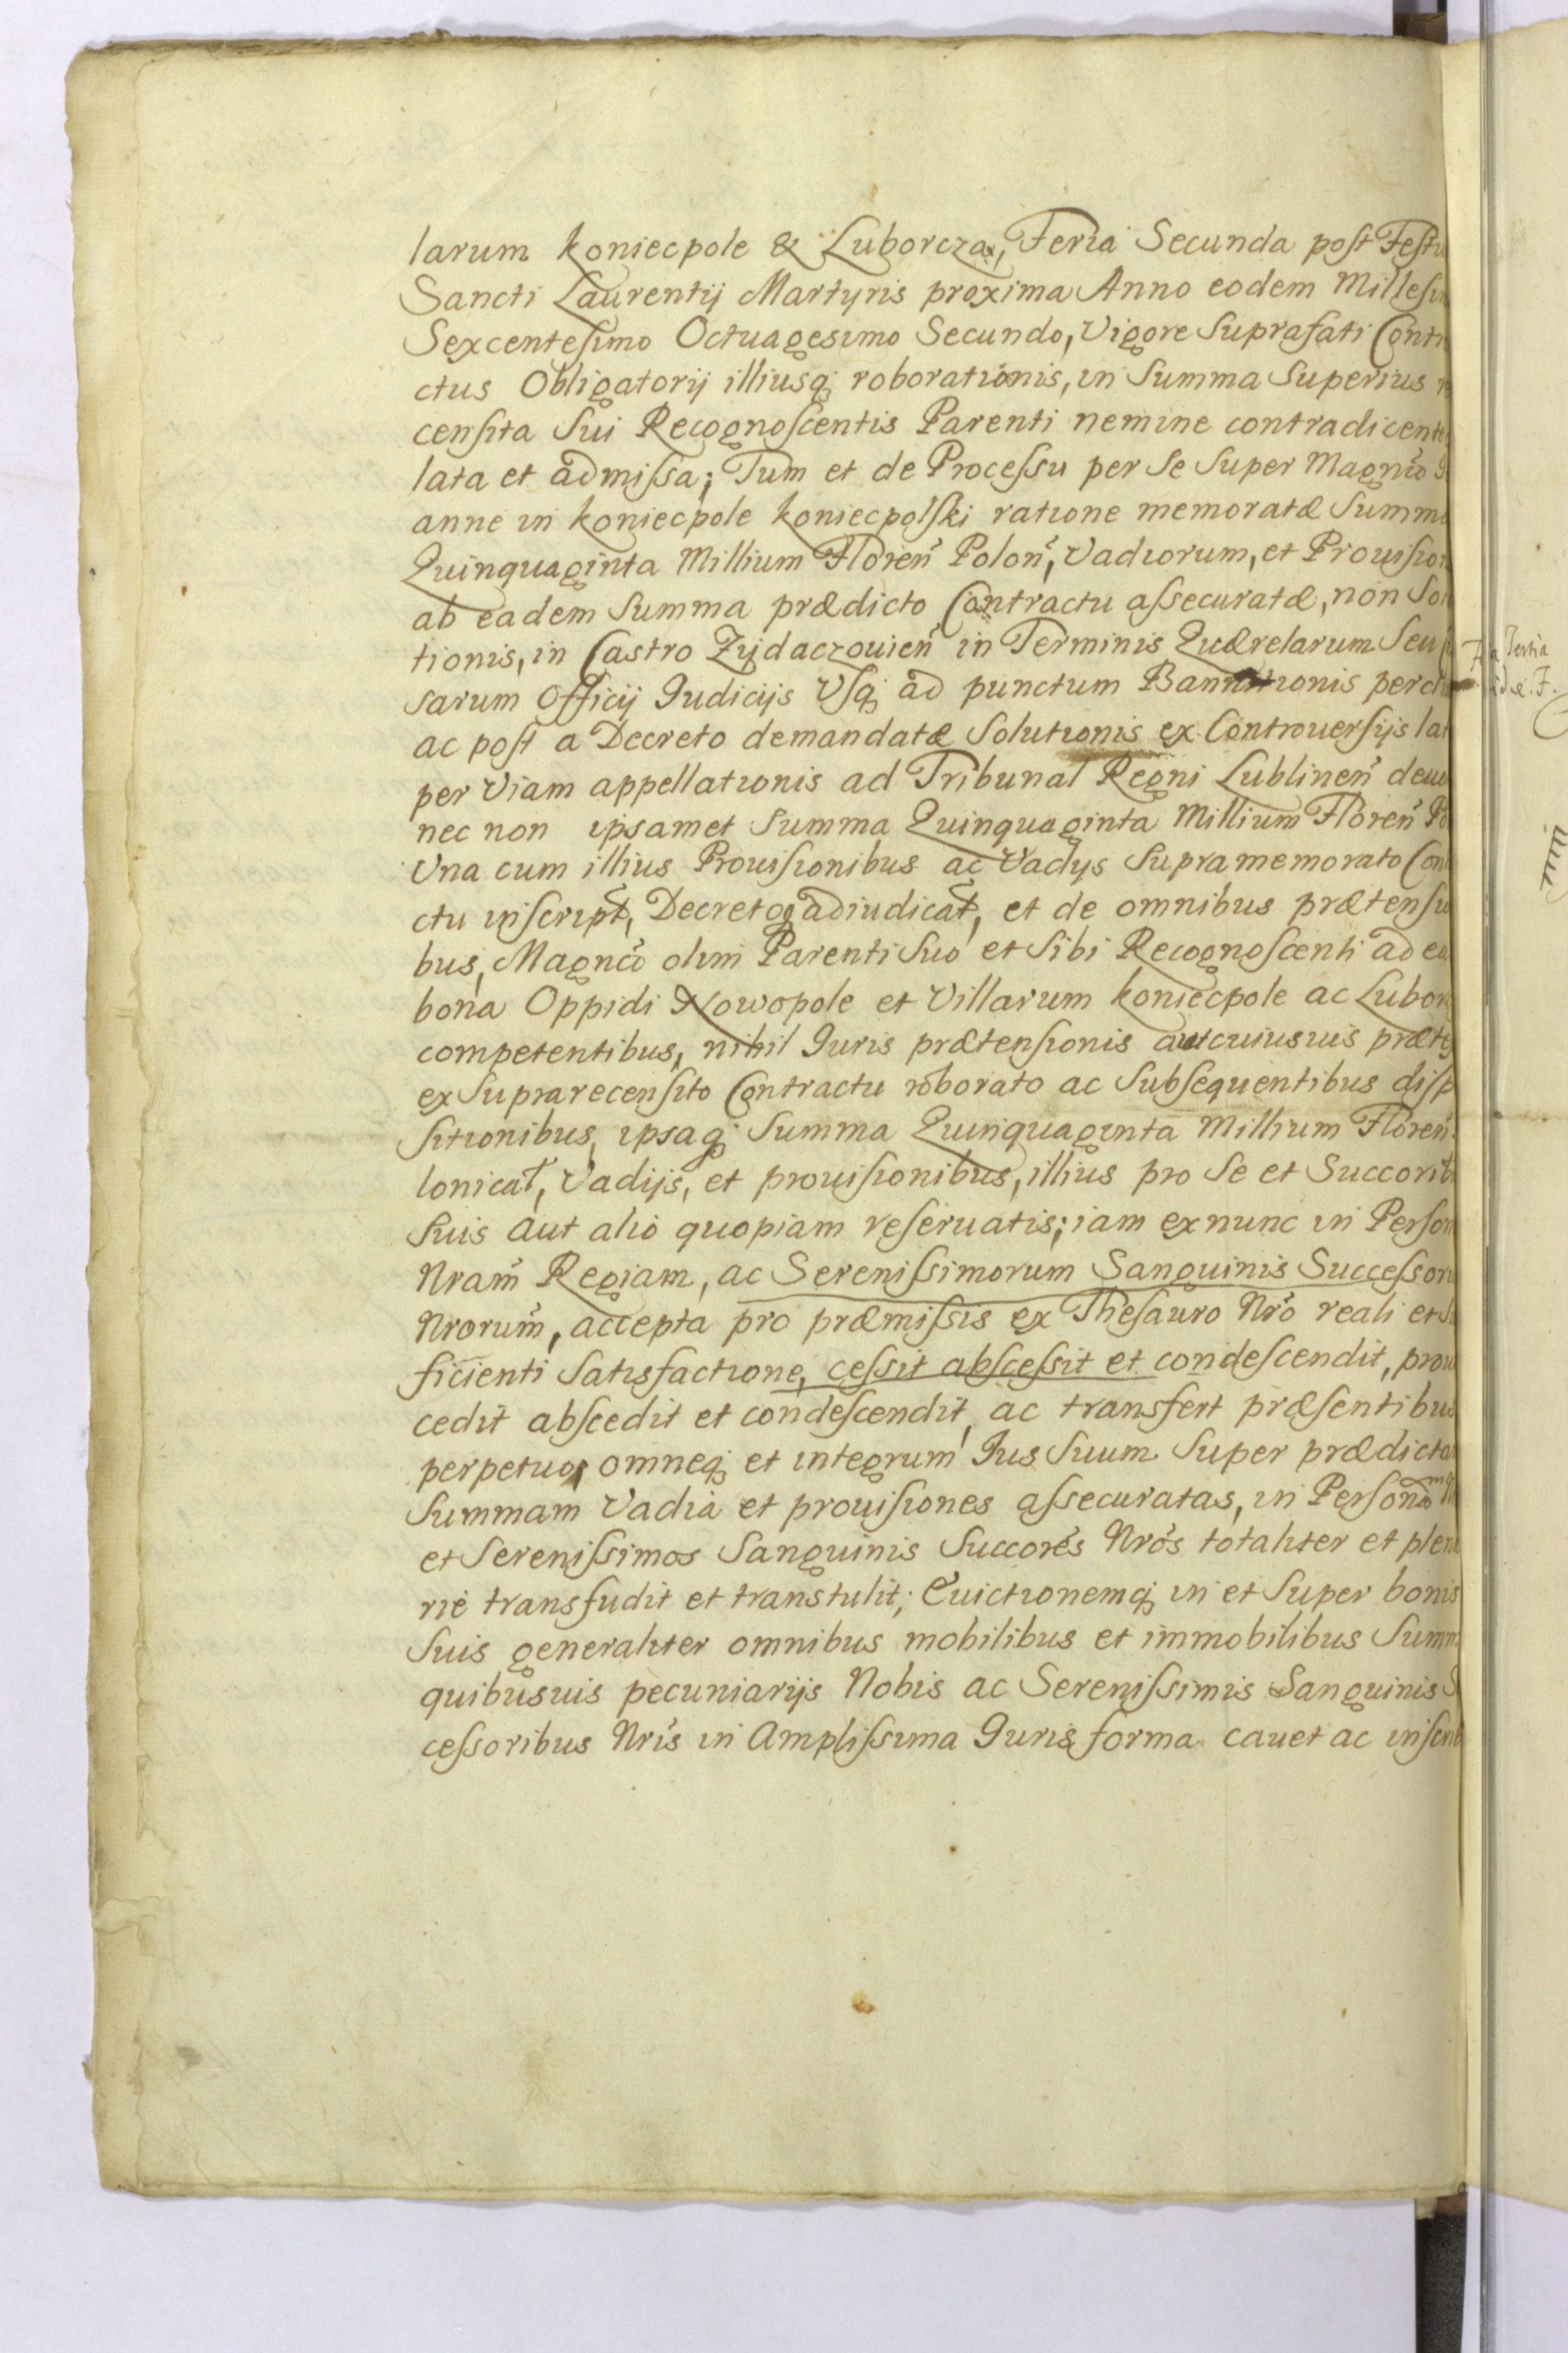 larum Koniecpole & Luborcza, Feria Secunda post Festu
Sancti Laurentij Martyris proxima Anno eodem Millesim
Sexcentesimo Octuagesimo Secundo, Vigore Suprafati Contr
ctus Obligatorij illiusq; roborationis, in Summa Superius
censita Sui Recognoscentis Parenti nemine contradicente
lata et admissa; Tum et de Processu per Se Super Magnco
anne in Koniecpole Koniecpolski ratione memoratæ Summæ
Quinquaginta Millium Floren Polon, Vadiorum, et Prouision
ab eadem Summa prædicto Contractu assecuratæ, non Sol
tionis, in Castro Zydaczouien in Terminis Quærelarum Seu
sarum Officij Iudicijs Usq; ad punctum Bannitionis perdu
ac post a Decreto demandatæ Solutionis ex Controuersijs lat
per Viam appellationis ad Tribunal Regni Lublinen deuo
nec non ipsamet Summa Quinquaginta Millium Floren Po
Una cum illius Prouisionibus ac Vadys Supramemorato Con
ctu inscript, Decretoq; adiudicat, et de omnibus prætensio
bus, Magnco olim Parenti Suo et Sibi Recognoscenti ad ea
bona Oppidi Nowopole et Villarum Koniecpole ac Lubor
competentibus, nihil Iuris prætensionis aut cuiusuis præte
ex Suprarecensito Contractu roborato ac Subsequentibus disp
sitionibus, ipsaq; Summa Quinquaginta Millium Floren
lonicat, Vadijs, et prouisionibus, illius pro Se et Succorib
Suis aut alio quopiam reseruatis; iam ex nunc in Person
Nram Regiam, ac Serenissimorum Sanguinis Successoru
Nrorum, accepta pro præmissis ex Thesauro Nro reali et Su
ficienti Satisfactione, cessit abscessit et condescendit, prou
cedit abscedit et condescendit, ac transfert præsentibus
perpetuo, omneq; et integrum Ius Suum Super prædicta
Summam Vadia et prouisiones assecuratas, in Personam N
et Serenissimos Sanguinis Succores Nros totaliter et plena
rie transfudit et transtulit; Euictionemq; in et Super bonis
Suis generaliter omnibus mobilibus et immobilibus Summ
quibusuis pecuniarijs Nobis ac Serenissimis Sanguinis S
cessoribus Nris in Amplissima Iuris forma cauet ac inscrib
Tertia